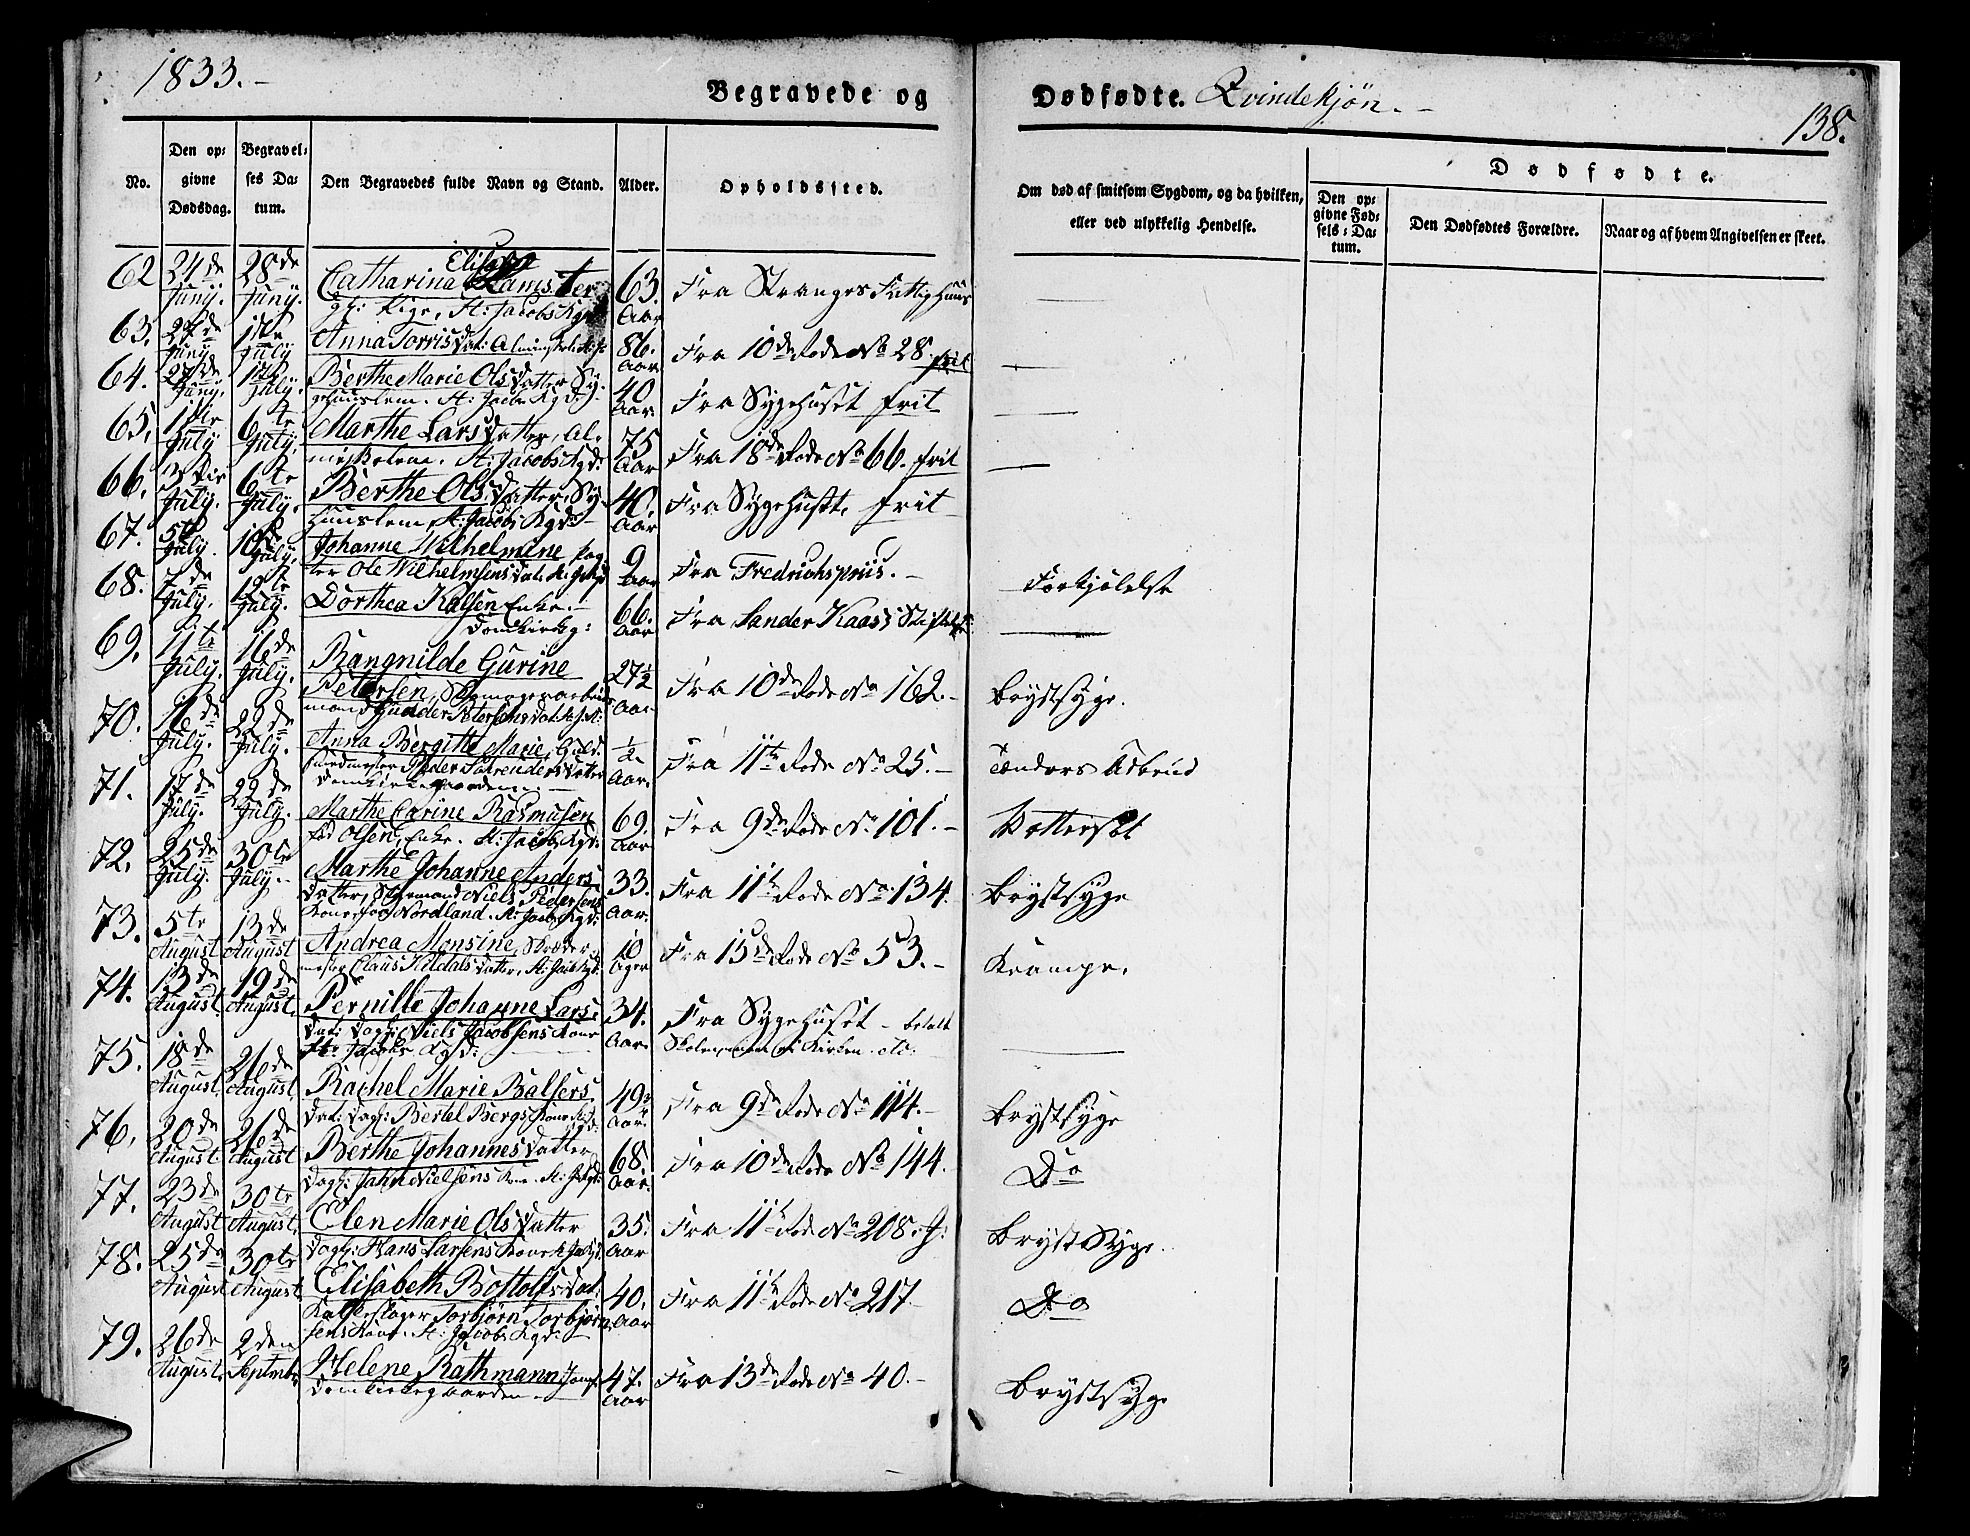 1833.-
Begravede og Dødfødte. Qvindekjøn.-
138.
No.
Den op-
givne
Dødsdag.
Begravel-
ses Da-
tum.
Den Begravedes fulde Navn og Stand.
Alder.
Opholdssted.
Om død af smitsom Sygdom, og da hvilken,
eller ved ulykkelig Hendelse.
Dødfødte.
Den op-
givne Fød-
sels-Da-
tum.
Den Dødfødtes Forældre.
Naar og af hvem Angivelsen er skeet.
62 24de Junÿ. 28de Junÿ. Catharina 63. Aar Fra Stranges Fattighuus
St: Jacobs Kgd
63. Junÿ 1te Julÿ Anna Torrisdat: 86. Aar Fra 10de Rode No 28 frit
64. 27de Junÿ. 1te Julÿ. Berthe Marie Olsdatter Sy-
gehuuslem. St: Jacobs Kgd: 40 Aar Fra Sygehuset frit
65. 1te Julÿ 6te Julÿ. Marthe Larsdatter, Al-
St: Jacobs Kgd: 75 Aar Fra 18de Rode No 66. frit
66. 3die Julÿ. 6te Julÿ. Berthe Olsdatter, Sÿ-
huuslem St: Jacobs Kgd: 40. Aar Fra Sygehuset. frit
67. 5te Julÿ. 10de Julÿ. Johanne Wilhelmine
Ole Wilhelmsens Dat. 9 Aar Fra Fredrichspriis.- Forkjølelse
68. 7de Julÿ. 12te Julÿ. Dorthea Kalsen Enke.-
Domkirkg: 66. Aar Fra Sander Kaass Stiftelse
69. 11te Julÿ. 16de Julÿ. Rangnilde Gurine
Petersen, 27½ Aar Fra 10de Rode No 162.- Brystsyge.
70. 16de Julÿ. 22de Julÿ. Anna Bergitte Marie, Guld-
smedmester Peder datter
Domkirkegaarden.- ½ Aar. Fra 11te Rode No 25.- Tænders Udbrud
71. 17de Julÿ. 22de Julÿ. Marthe Carine Rasmusen
fød Olsen, Enke. St: Jacobs Kgd: 69. Aar Fra 9de Rode No 101.- Vattersot
72. 25de Julÿ. 30te Julÿ.- Marthe Johanne Anders-
datter, Niels Pedersens
Kone fra Nordland. St: Jacobs Kgd: 33. Aar. Fra 11te Rode No. 134. Brystsyge
73. 5te August 13de August Andrea Monsine, Skræder-
mester Claus Kildals datter, St: Jacobs Kgd. 10 Fra 15de Rode No 53.- Krampe.
74. 13de August 19de August. Pernille Johanne Lars-
dat: Dagl: Niels Jacobsens Kone
St: Jacobs Kgd: 34. Aar. Fra Sygehuset - betalt
75. 18de August. 26de August Rachel Marie Balsers-
dat: Dagl: Bertel Bergs Kone 49 Aar. Fra 9de Rode No 114.- Brystsyge
76. 20de August 26de August Berthe Johannesdatter
Dagl: John Nielsens Kone. 68. Aar. Fra 10de Rode No 144. Do
77. 23de August 30te August. Elen Marie Olsdatter
Dagl: Hans Larsens Kone 35. Aar Fra 11te Rode No 208. Bryst Syge.
78. 25de August 30te August. Elisabeth Bottolfsdat:
Torbjørn Torbjørn-
sens Kone. St: Jacobs Kgd: 40. Aar Fra 11te Rode No 217. Do
79. 26de August. 2den Septembr Helene Rathmann, Jomf.
Domkirkegaarden.- 47. Aar Fra 13de Rode No 40.- Brystsyge